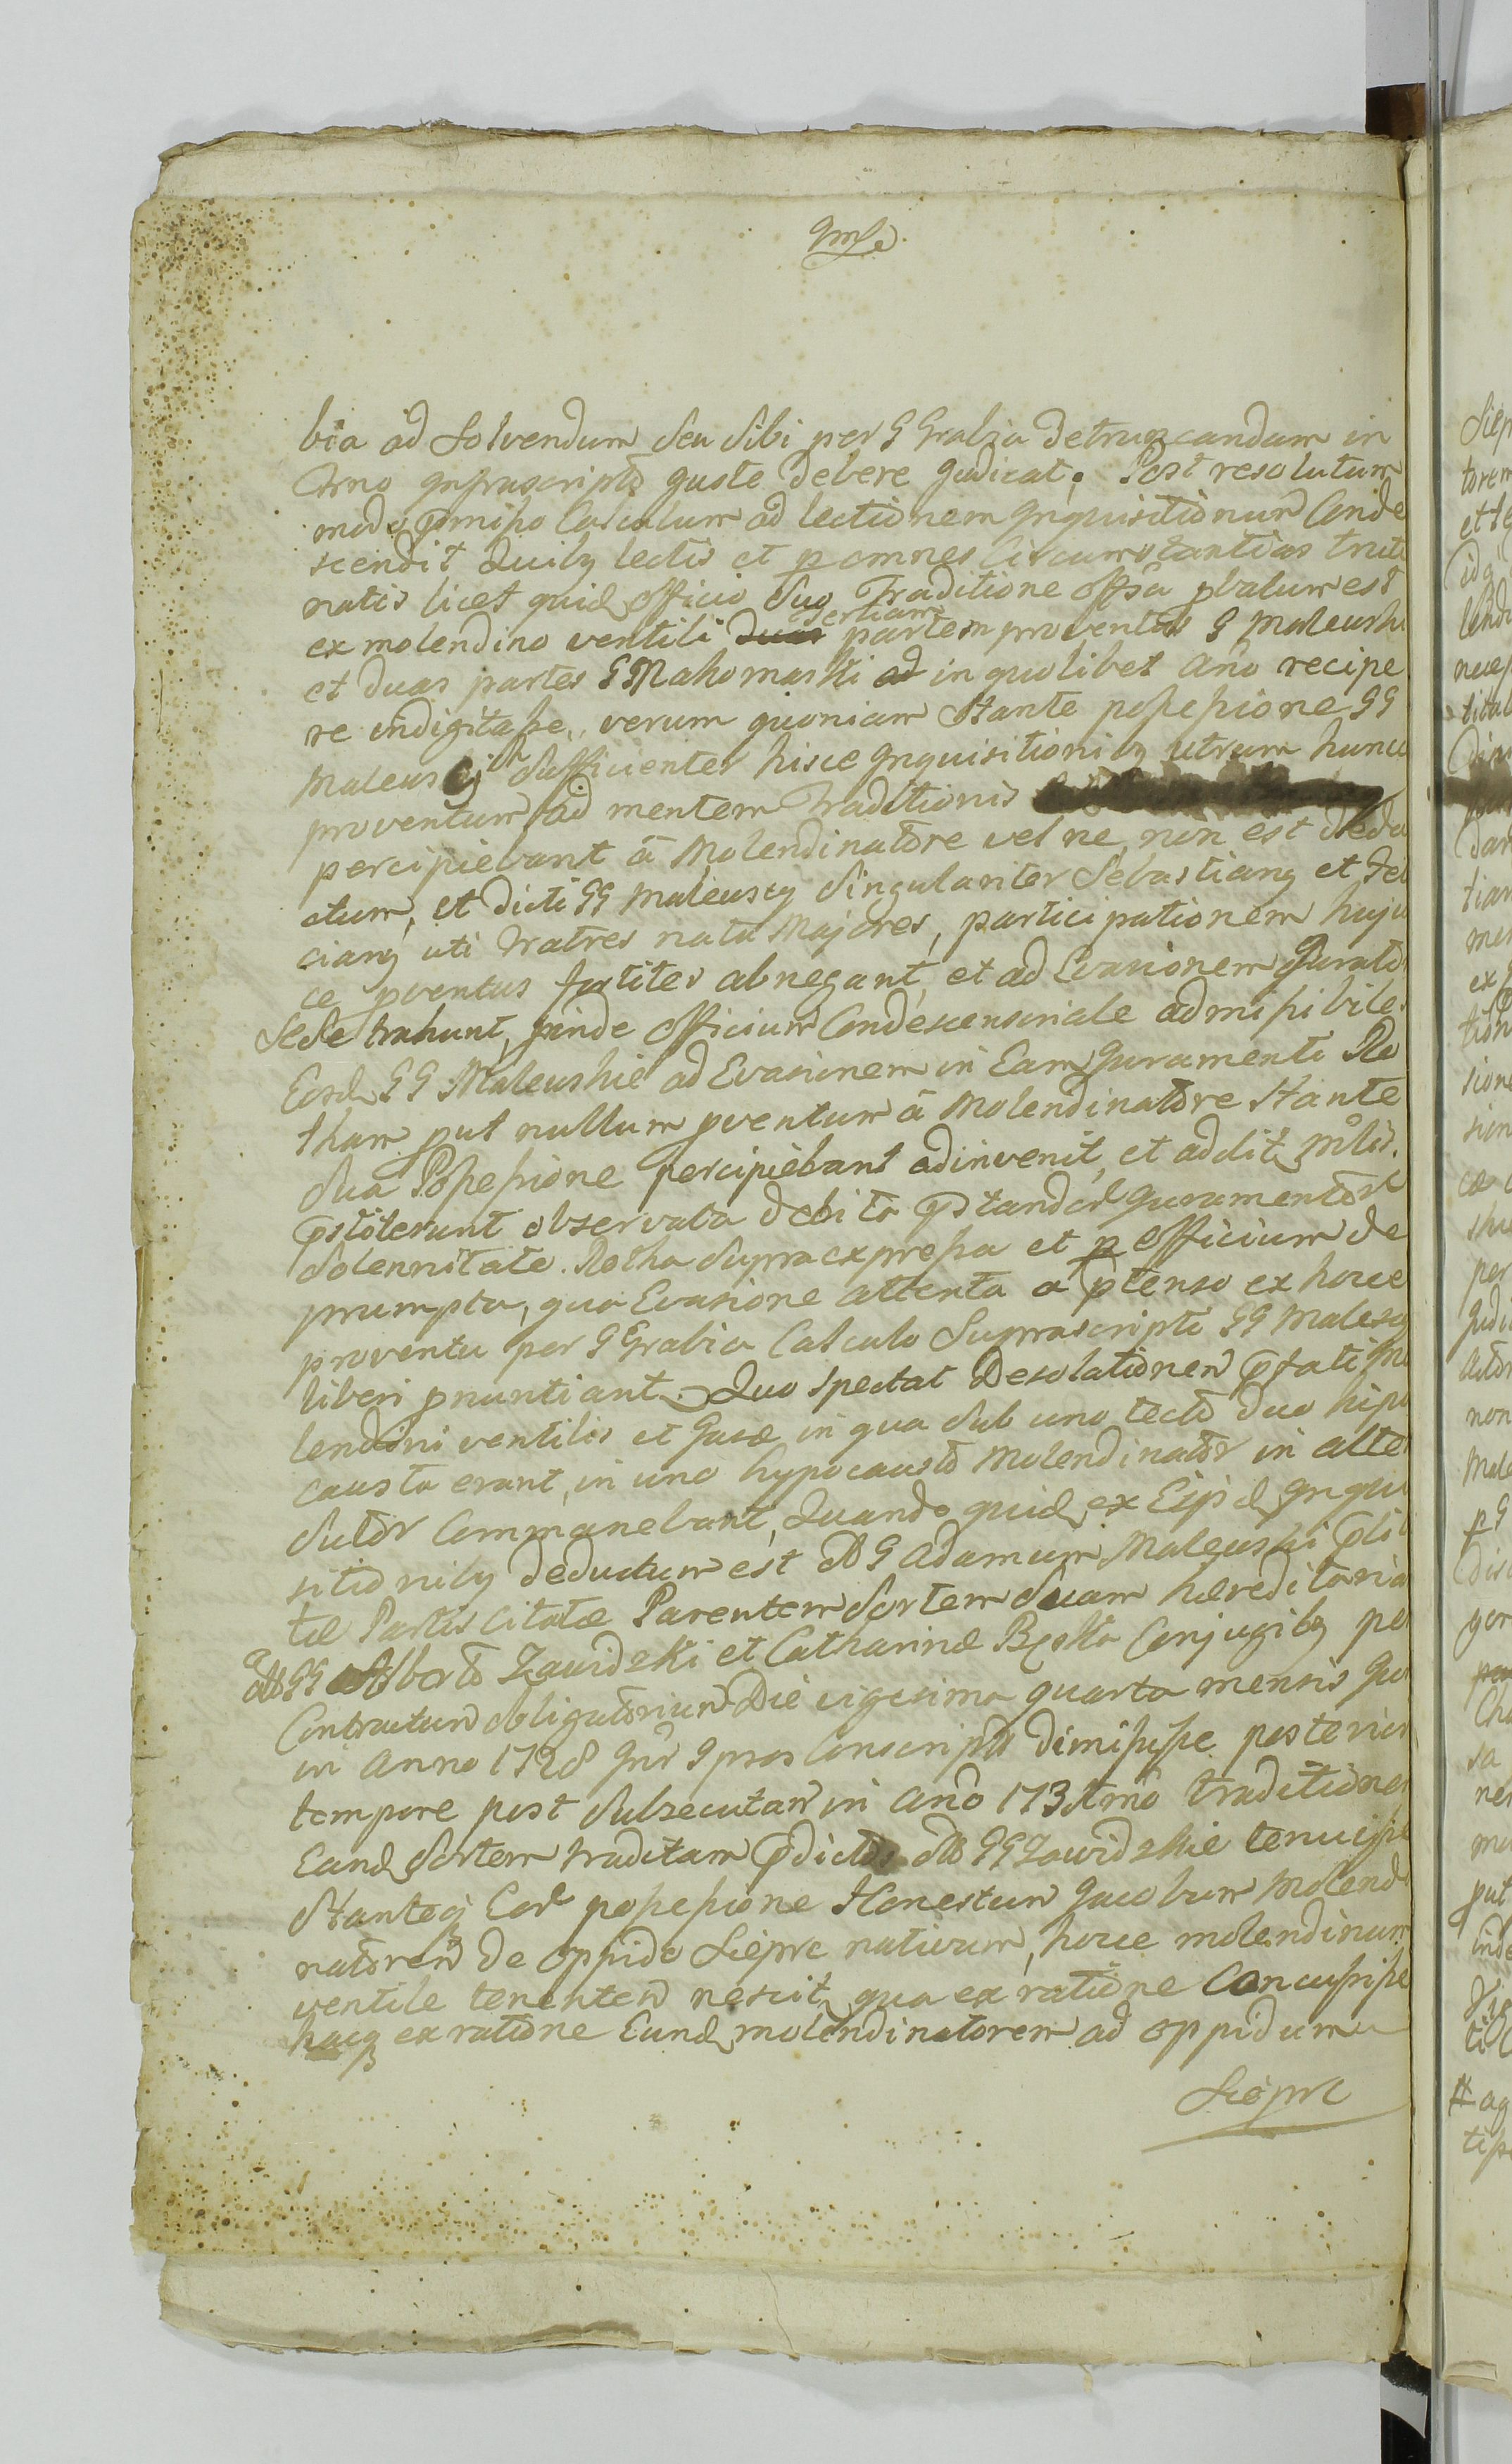 bia ad solvendum seu sibi per G Grabia detruncandum in
Arno Infrascripto Juste debere Judicat. Post resolutum
modo pmisso Calculum ad lectionem Inquisitionum Conde
scendit Quibq lectis et p omnes Circumstantias truti
natis licet quid officio suo Traditione offsa pbatum est
ex molendino ventili tertiam partem proventus G Maleuski
et duas partes G Makomaski in quolibet Ano recipe
re indigitasse, verum quoniam Stante possessione GG
Maleuscij sufficienter hisce Inquisitionibq utrum hunce
proventum ad mentem Traditionis
percipiebant a Molendinatore vel ne non est dedu
ctum, et dicti GG Maleuscy Singulariter Sebastiang et Feli
ciang uti Fratres natu Majores, participationem huju
ce pventus fortiter abnegant, et ad Evasionem Jurato
sese trahunt, proinde officium Condescensoriale admissibiles
Eosd GG Maleuskie ad Evasionem in Eam Juramenti Ro
tham put nullum pventum a Molendinatore Stante
sua Possessione percipiebant adinvenit, et addit
pstiterunt observata debita pstandor Juramentor
Solennitate. Rotha supra expressa et p Officium de
prumpta, qua Evasione attenta a ptenso ex hocce
proventu per G Grabia Calculo Suprascripti GG Malescy
liberi pnuntiant. Quo spectat Desolationem pfati Mo
lendini ventilis et Casæ in qua sub uno tecto duo hipo
causta erant, in uno hypocausto Molendinator in alte
sutor Commanebant, Quando quid ex Eisd Inqui
sitionibq deductum est G Adamum Maleuski
tæ Partis Citatæ Parentem Sortem suam hæreditaria
GG Alberto Zawidzki et Catharinæ Conjugibq pe
Contractum obligatorium Die vigesima quarta mensis Ju
in Anno 1728 Inr Ipsos Conscriptu dimisisse posterior
tempore post subsecutam in Ano traditione
Eand Sortem traditam pdictos GG Zawidzkie tenuisse
Stanteq Eor possessione Honestum Jacobum Molendi
natorem de oppido Siepre nativum, hocce molendinum
ventile tenentem nescit qua ex ratione Concussisse
hacq ex ratione Eund molendinatorem ad oppidum
Siepre